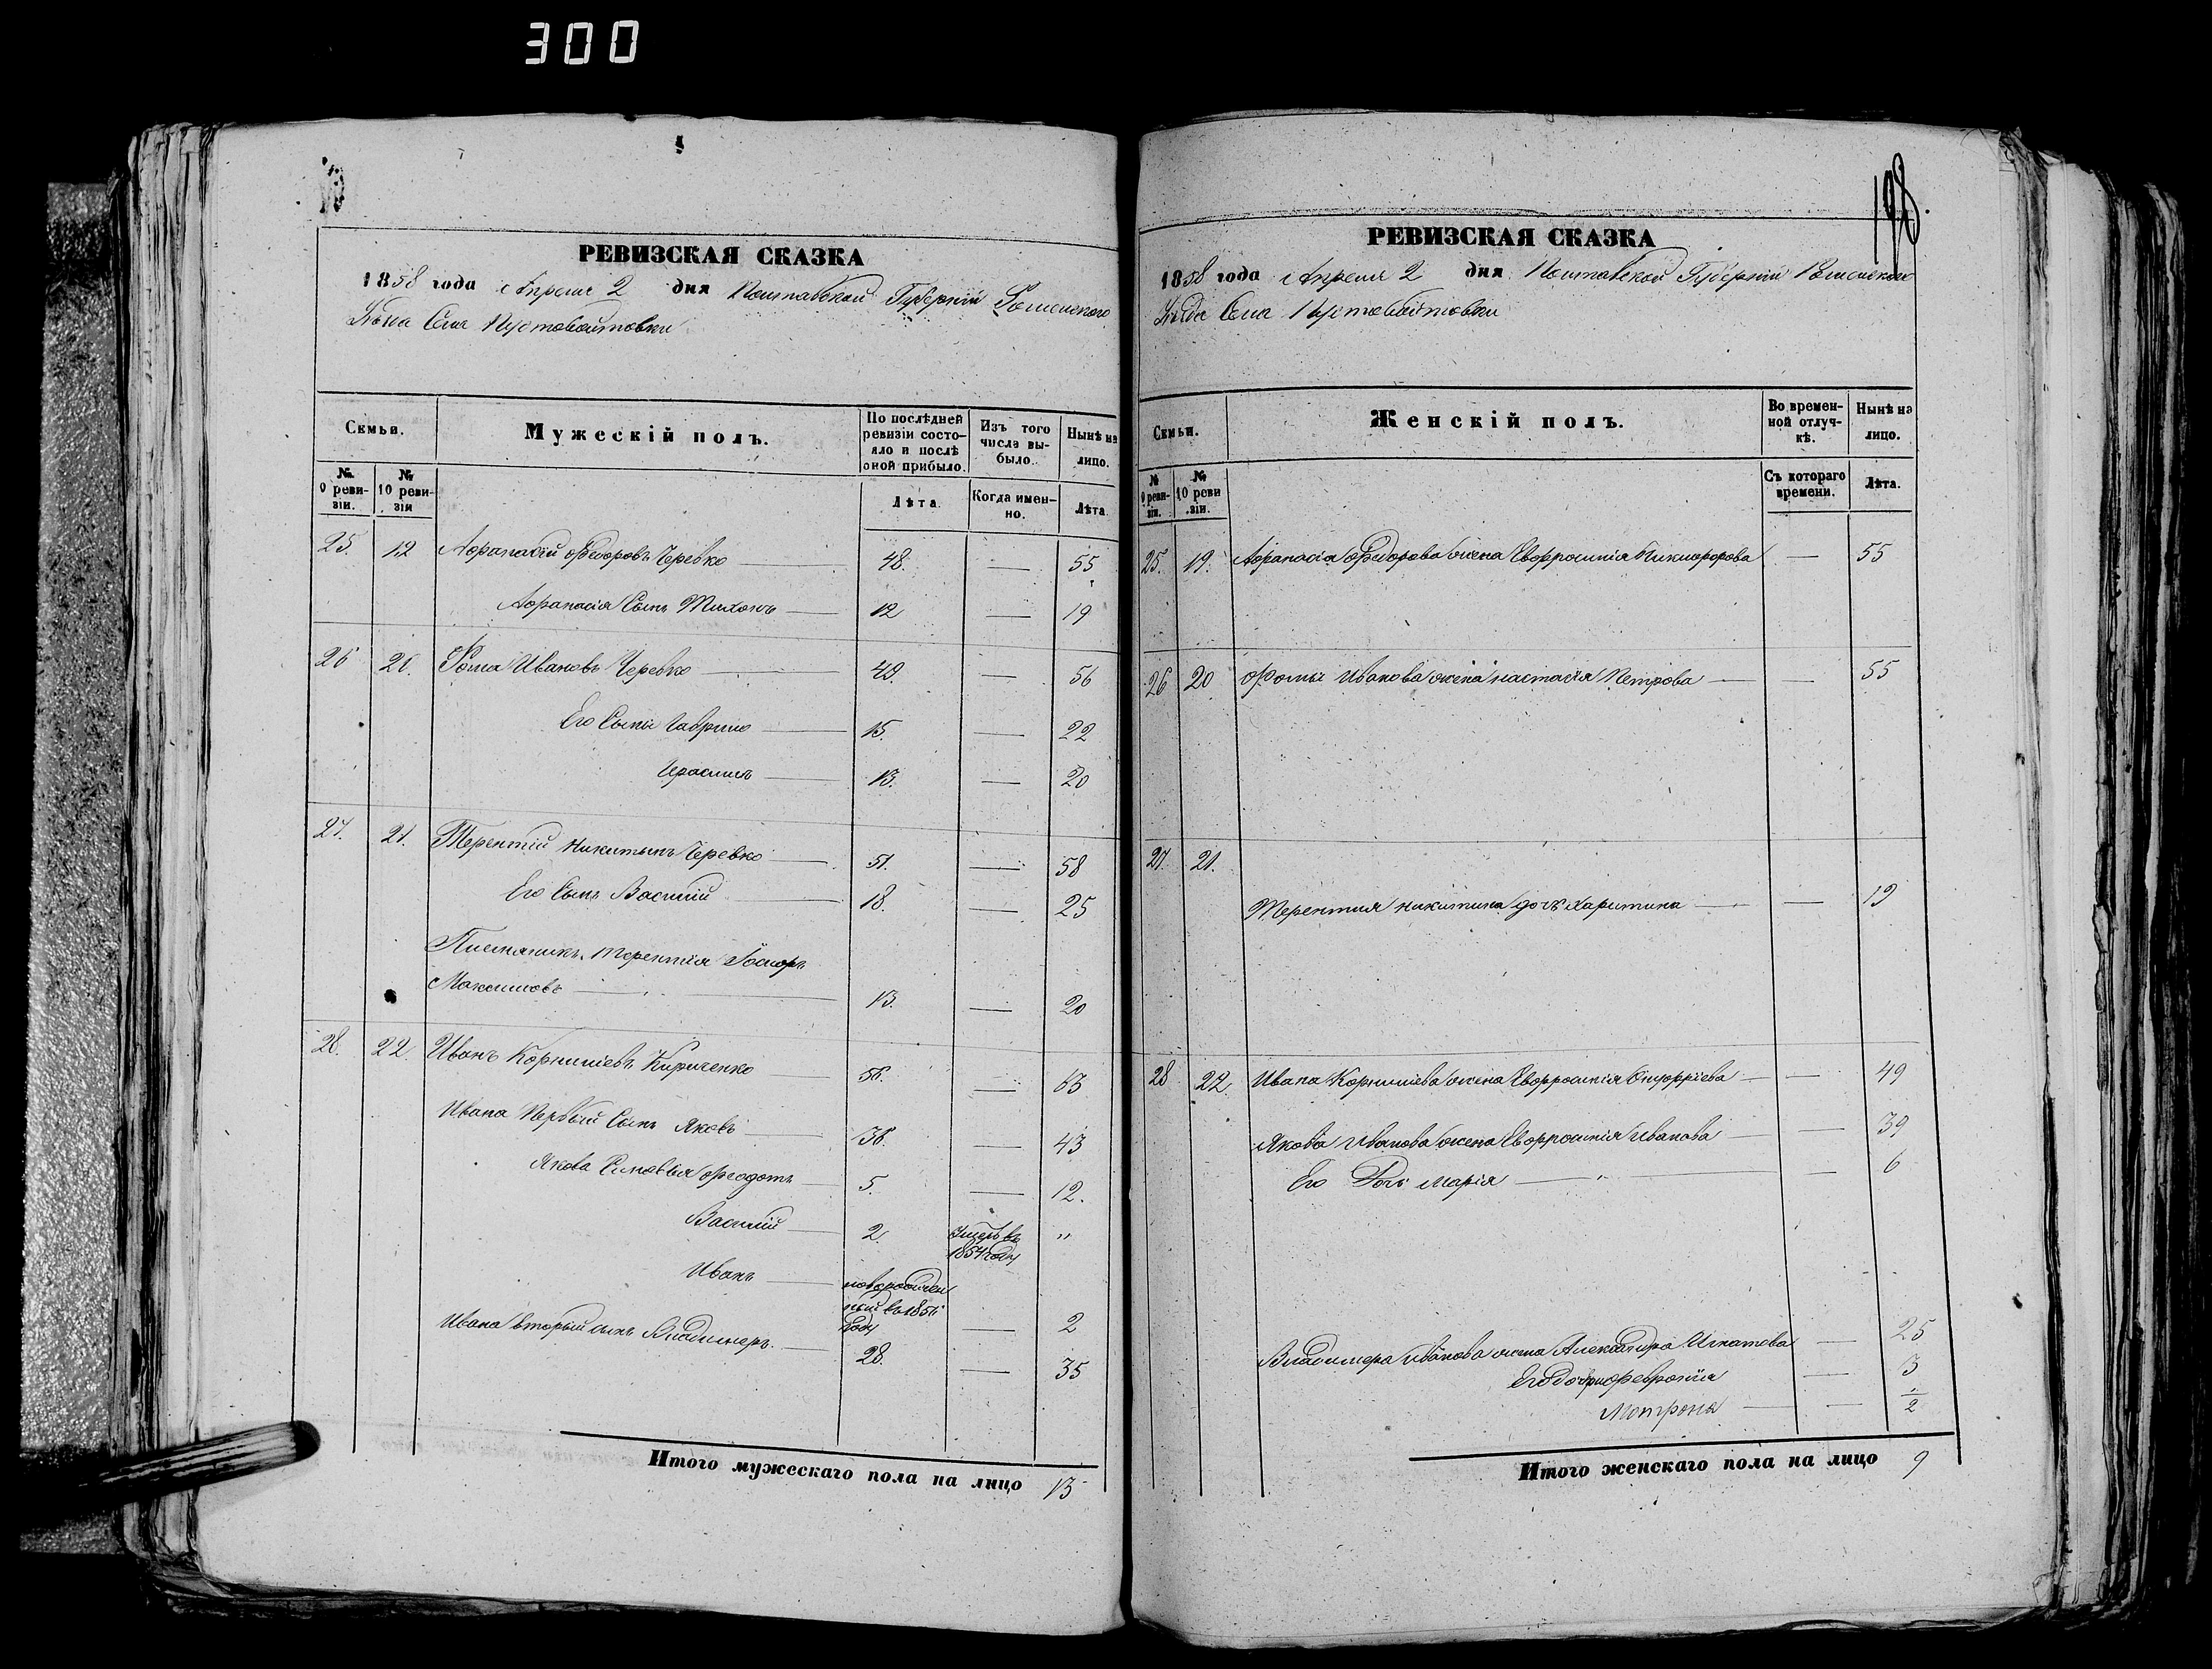 300
198
РЕВИЗСКАЯ СКАЗКА
1858 года Апреля 2 дня Полтавской Губерніи Роменского
Уѣзда Села Пустовойтовки
Семьи.
Мужескій полъ.
По послѣдней ревизіи состо-
яло и послѣ
оной прибыло.
Изъ того
числа вы-
было.
Нынѣ на
лицо.
№ 9 реви-
зіи.
№ 10 реви-
зіи
Лѣта.
Когда имен-
но.
Лѣта.
25. 19 Афанасій Федоровъ Черевко — 48. — 55
Афанасія Сынъ Тихонъ — 12 — 19
26 20. Фома Ивановъ Черевко — 49. — 56
Его Сыны Гаврило — 15. — 22
Герасимъ — 13. — 20
27. 21. Терентій Никитинъ Черевко — 51. — 58
Его Сынъ Василій — 18. — 25
Племяникъ Терентія
Максимовъ — 13. — 20
28. 22. Иванъ Корниліевъ Кириченко — 56. — 63
Ивана Первый Сынъ Яковъ — 36. — 43
Якова Сыновья Феодотъ — 5. — 12.
Василій — 2. Умеръ въ 1854 году "
Иванъ — новорожден
ный въ 1856
году — 2
Ивана вторый сынъ Владимеръ. — 28. — 35
Итого мужескаго пола на лицо 13
РЕВИЗСКАЯ СКАЗКА
1858 года Апреля 2 дня Полтавской Губерніи Роменского
Уѣзда Села Пустовойтовки
Семьи.
Женскій полъ.
Во времен-
ной отлуч-
кѣ.
Нынѣ на
лицо.
№ 9 реви-
зіи.
№ 10 реви
зіи.
Съ котораго
времени.
Лѣта.
25. 19. Афанасія Федорова жена Евфросинія Никифорова — 55
26 20 Фомы Иванова жена Настасія Петрова — — 55
27. 21.
Терентия Никитина дочь Харитина — — 19
28 22. Ивана Корниліева жена Евфросинія Онуфріева — — 49
Якова Иванова жена Евфросинія Иванова — — 39
Его Дочь Марія — — 6
Владимера Иванова жена Александра Игнатева — 25
Его дочери Февронія — 3
Мотрона — — 1/2
Итого женскаго пола на лицо 9